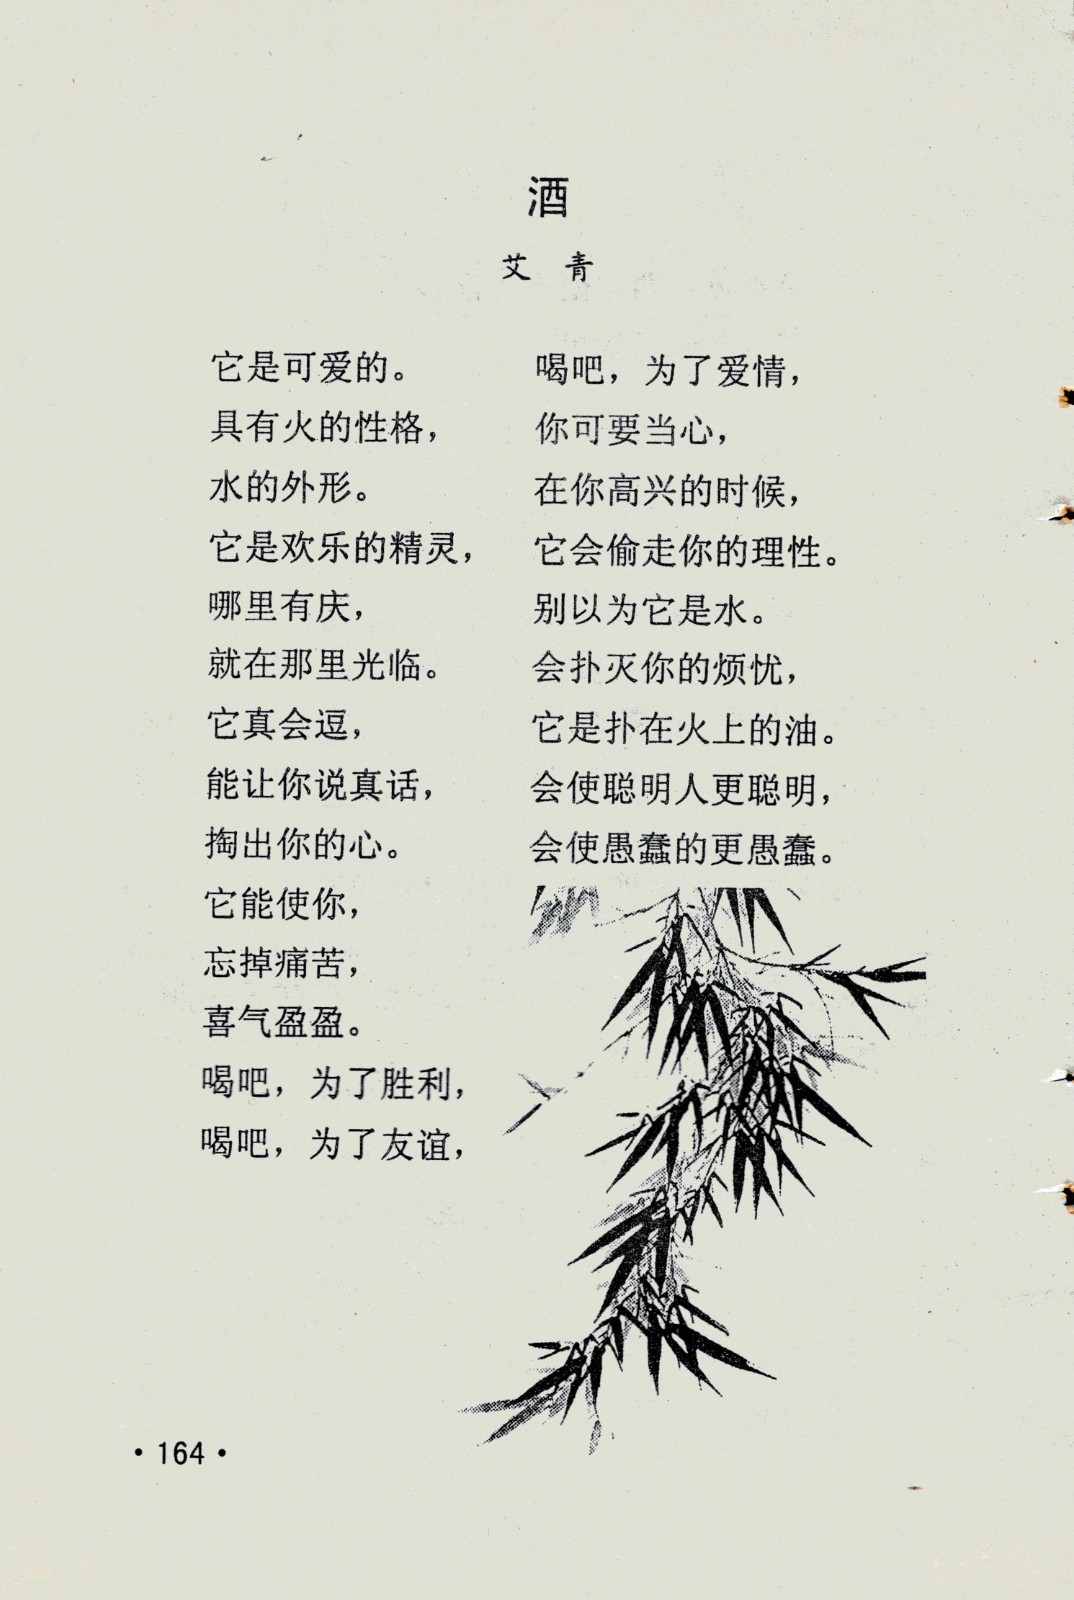 酒
艾 青
它是可爱的。
具有火的性格，
水的外形。
它是欢乐的精灵，
哪里有庆，
就在那里光临。
它真会逗，
能让你说真话，
掏出你的心。
它能使你，
忘掉痛苦，
喜气盈盈。
喝吧，为了胜利，
喝吧，为了友谊，
喝吧，为了爱情，
你可要当心，
在你高兴的时候，
它会偷走你的理性。
别以为它是水。
会扑灭你的烦忧，
它是扑在火上的油。
会使聪明人更聪明，
会使愚蠢的更愚蠢。
·164·